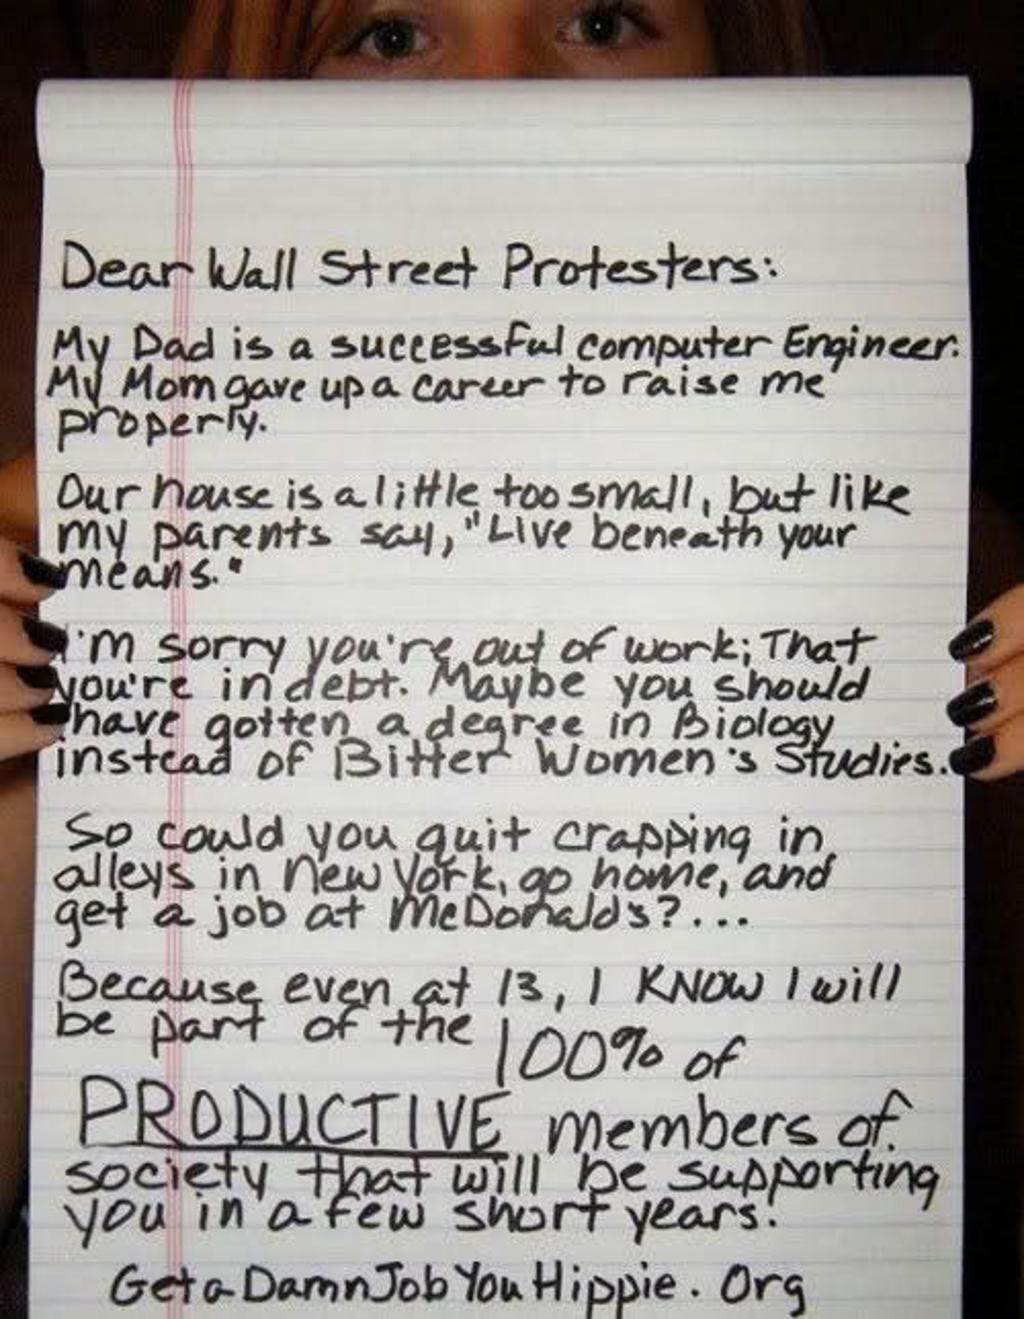 Dear Wall Street Protesters:
My Dad is a successful computer Engineer.
My Mom gave up a career to raise me
properly.
Our house is a little too small, but like
my parents say, "Live beneath your
means."
I'm sorry you're out of work; That
you're in debt. Maybe you should
have gotten a degree in Biology
instead of Bitter Women's Studies.
So could you quit crapping in
alleys in New York, go home, and
get a job at McDonald's?...
Because even at 13, I KNOW I will
be part of the 100% of
PRODUCTIVE members of
society that will be supporting
you in a few short years.
GetaDamnJobYouHippie.Org